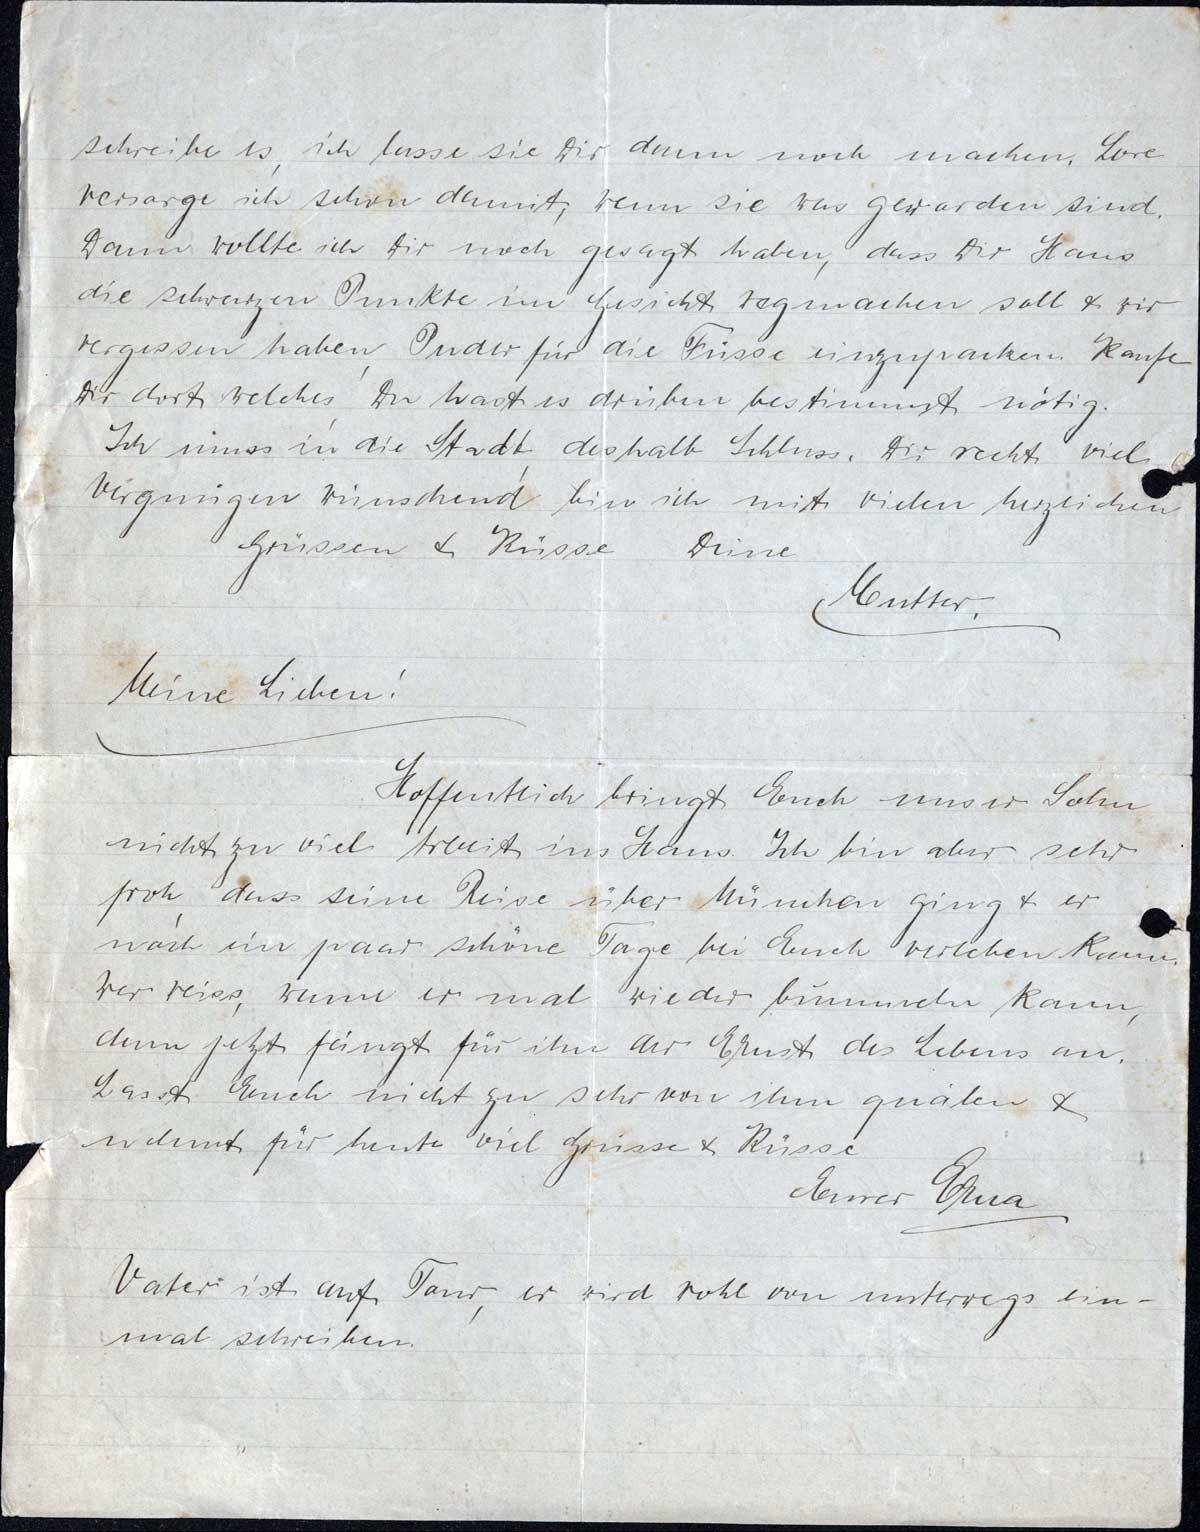 schreibe es, ich lasse sie Dir dann noch machen. Lore
versorge ich schon damit, wenn sie was geworden sind.
Dann wollte ich Dir noch gesagt haben, dass Dir Hans
die schwarzen Punkte im Gesicht wegmachen soll & wir
vergessen haben, Puder für die Füsse einzupacken. Kaufe
Dir dort welches, Du hast es drüben bestimmt nötig.
Ich muss in die Stadt, deshalb Schluss. Dir recht viel
Vergnügen wünschend, bin ich mit vielen herzlichen
Grüssen & Küsse Deine
Mutter.
Meine Lieben!
Hoffentlich bringt Euch unser Sohn
nicht zu viel Arbeit ins Haus. Ich bin aber sehr
froh, dass seine Reise über München ging & er
noch ein paar schöne Tage bei Euch verleben kann.
Wer weiss, wenne er mal wieder bummeln kann,
denn jetzt fängt für ihn der Ernst des Lebens an.
Lasst Euch nicht zu sehr von ihm quälen &
nehmt für heute viel Grüsse & Küsse
Eurer Erna
Vater ist auf Tour, er wird wohl von unterwegs ein-
mal schreiben.